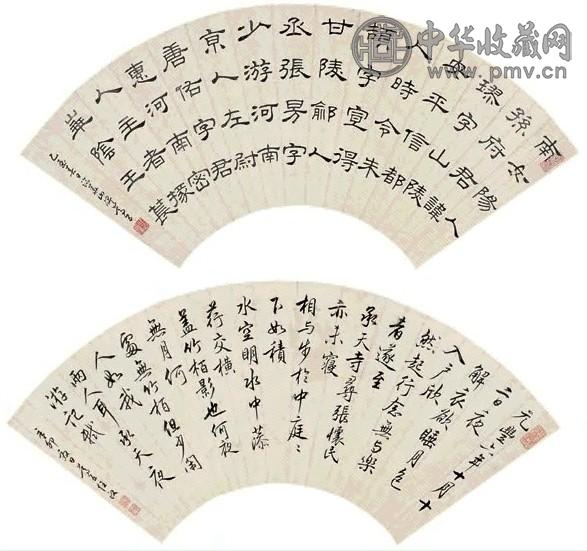 中华收藏网
www.pmv.cn
南女陽人
孫府君諱
璆字山陵
安平信都
人時令朱
頡字宣得
甘陵鄃人
丞張昉字
少游河南
京人左尉
唐佑字君
惠河南密
人主者掾
華陰王萇
元豐六年十月十
二日夜
解衣欲睡月色
入戶欣
然起行念無与樂
者遂至
承天寺尋張懷民
亦未寢
相与步於中庭ミ
下如積
水空明水中藻
荇交橫
蓋竹柏影也何夜
無月何
處無竹柏但少閑
人如我
兩人耳 承天夜
游記